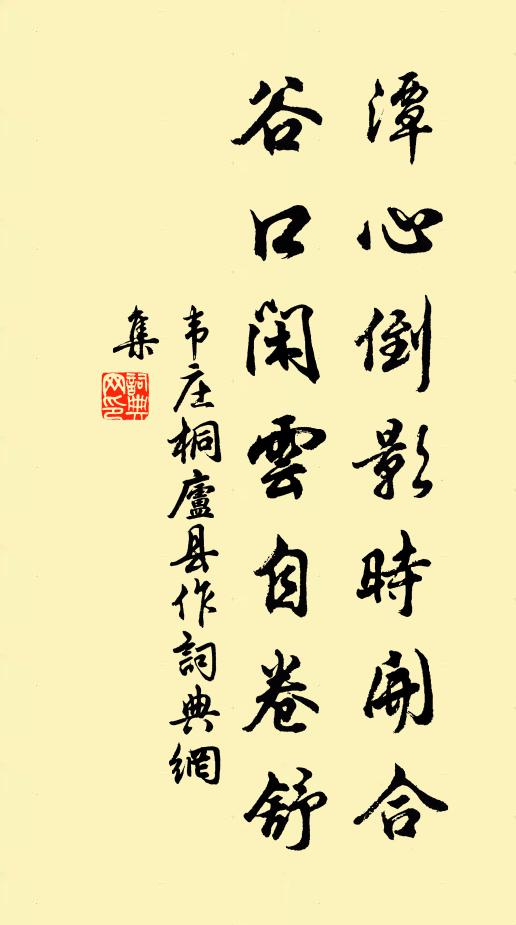 潭心倒影時開合
谷口閑雲自卷舒
韦庄桐廬县作詞典網
集
詞典
网印